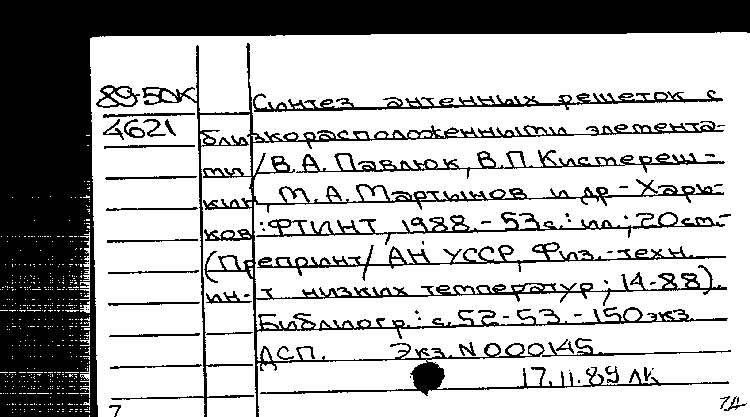 89-50К Синтез антенных решеток с
4621 близкорасположенными элемента-
ми / В.А. Павлюк, В.П. Кистереш-
кин, М.А. Мартынов и др - Харь-
ков : ФТИНТ, 1988. - 53с. : ил. ; 20см. -
(Препринт / АН УССР, Физ.-техн.
ин-т низких температур ; 14-88).
Библиогр.: с. 52-53. - 150 экз
ДСП. Экз. N 000145.
17.11.89 ЛК